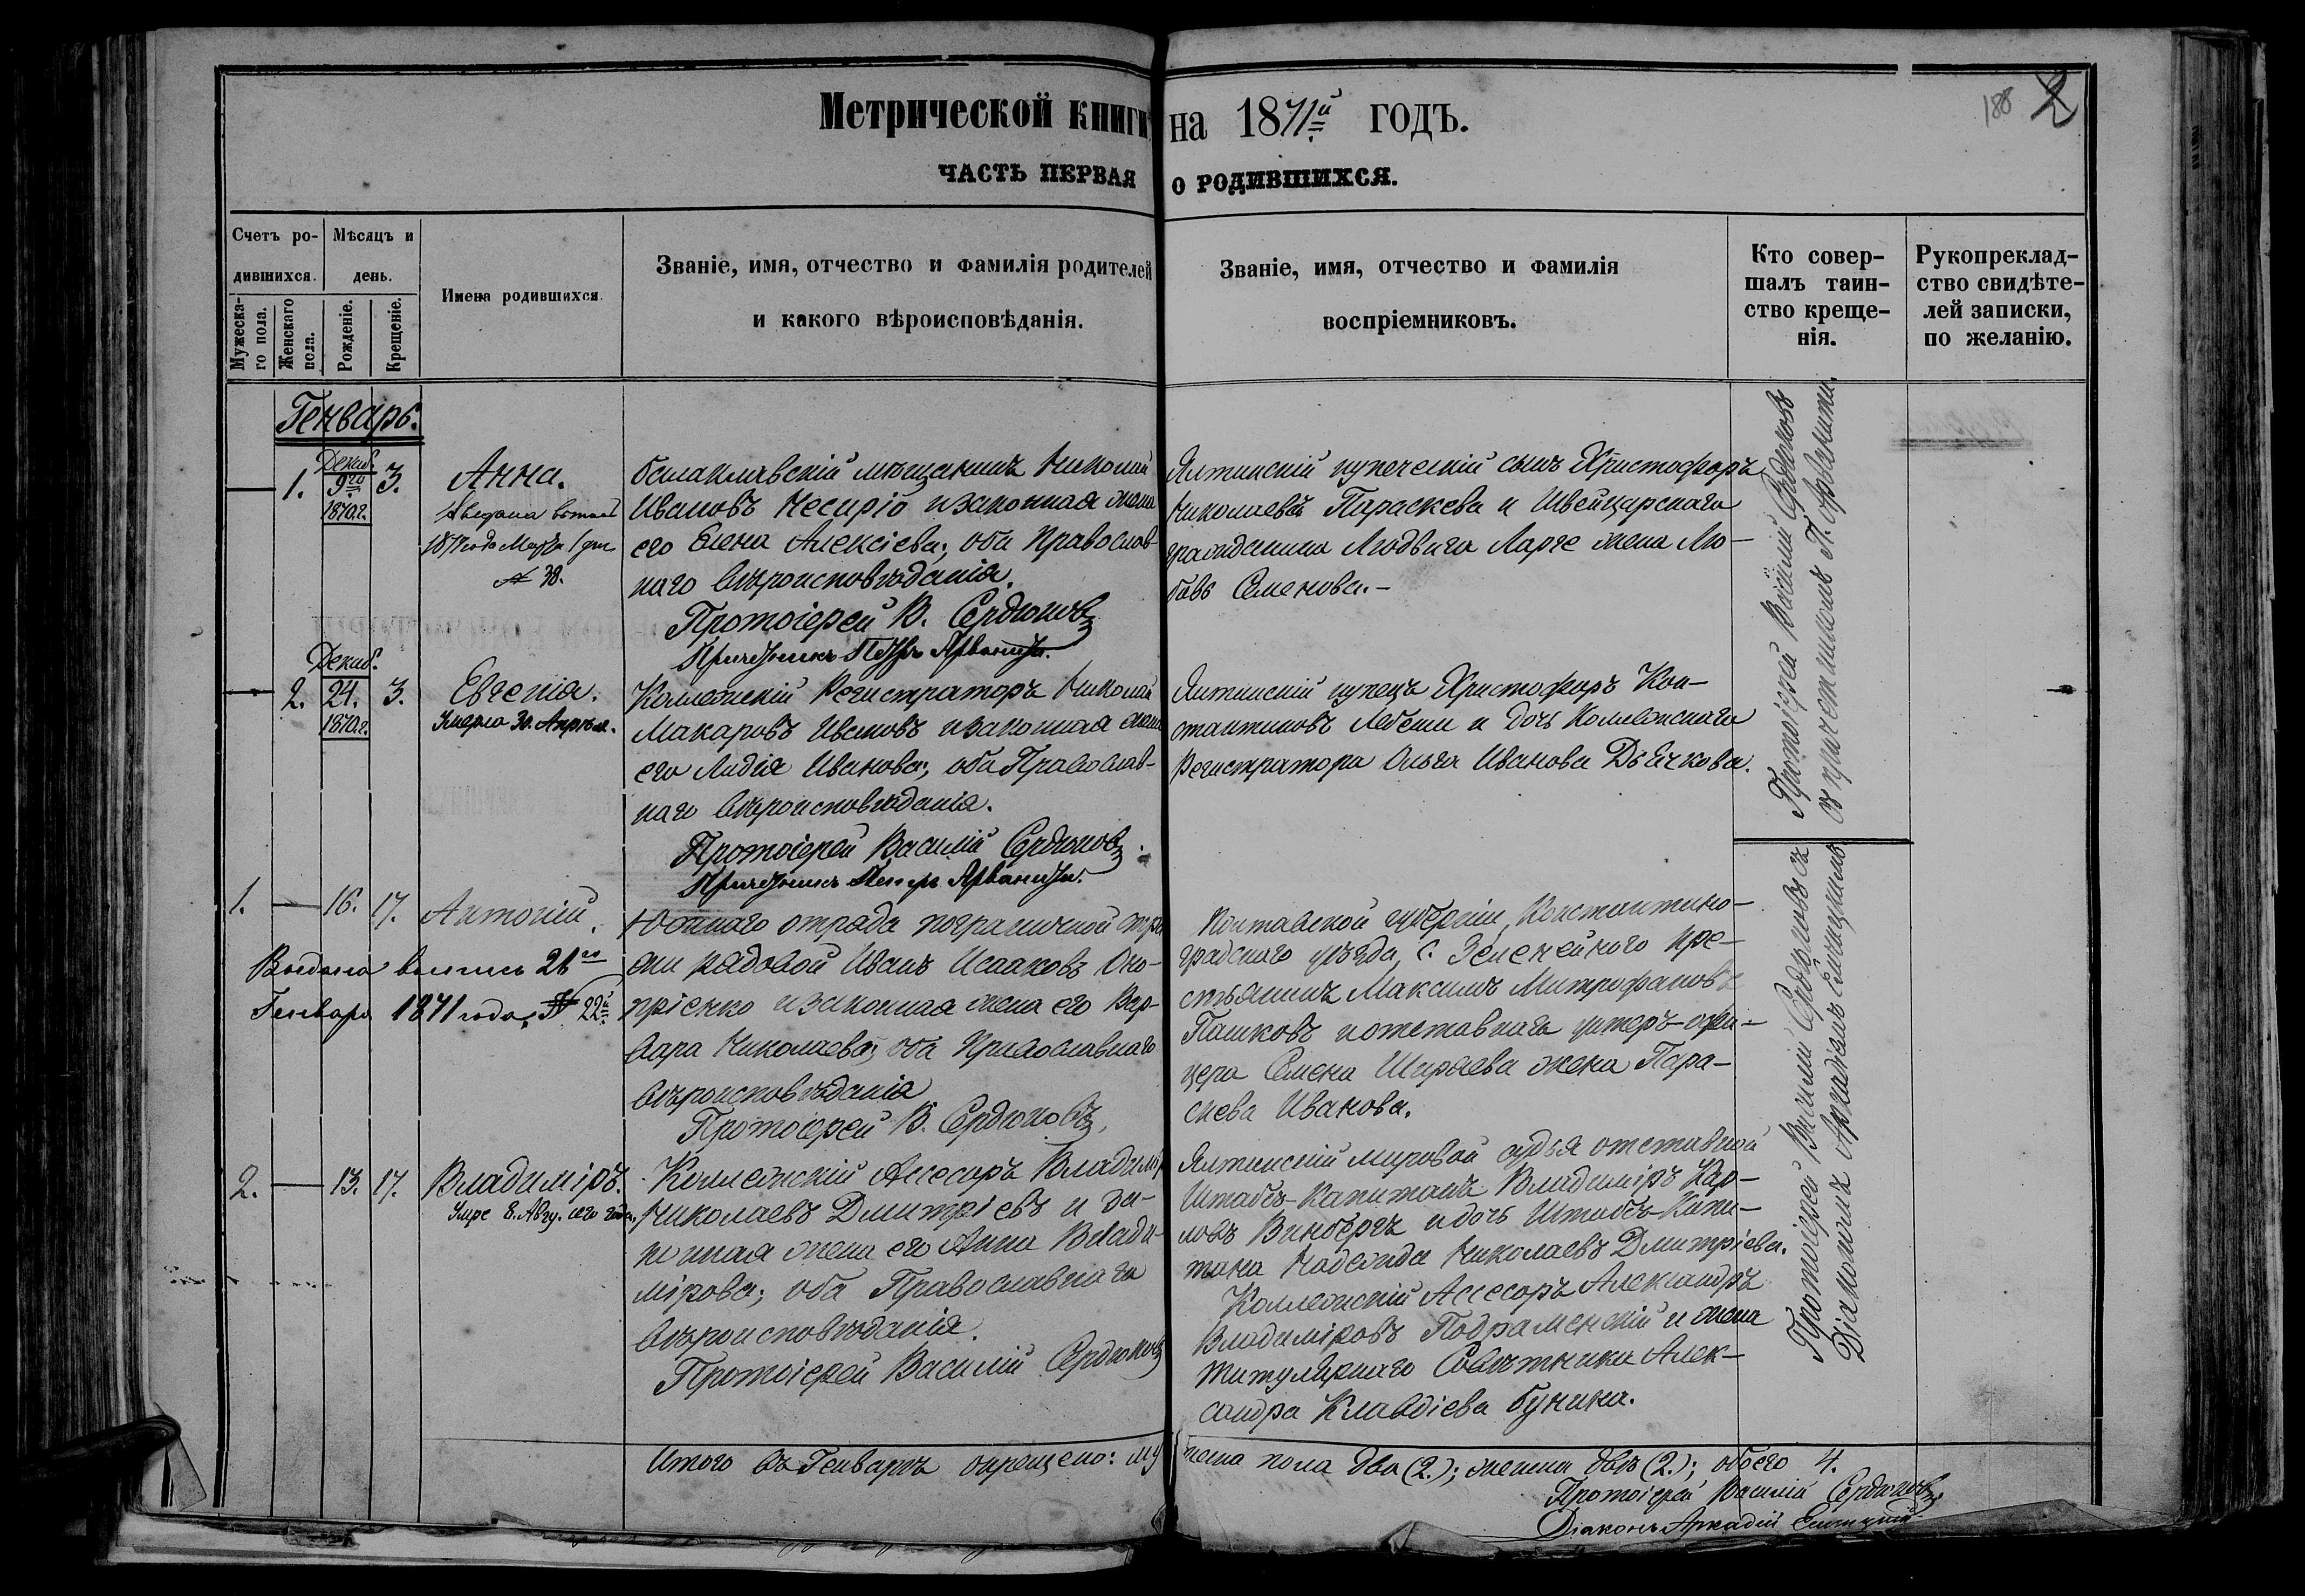 Метрической книги на 1871й годъ.
188 2
ЧАСТЬ ПЕРВАЯ о родившихся.
Счетъ ро-
дившихся.
Мѣсяцъ и
день.
Мужеска-
го пола.
Женскаго
пола.
Рожденіе.
Крещеніе.
Имена родившихся.
Званіе, имя, отчество и фамилія родителей
и какого вѣроисповѣданія.
Званіе, имя, отчество и фамилія
воспріемниковъ.
Кто совер-
шалъ таин-
ство креще-
нія.
Рукоприклад-
ство свидѣте-
лей записки,
по желанію.
Генварь.
1. Декаб. 9го 1870.г. 3.
Анна.
1871 года Марта 1 дня
№ 38.
балаклавскій мѣщанинъ Николай
Ивановъ Чесиріо и законная жена
его Елена Алексіева; оба Православ-
наго Вѣроисповѣданія.
Протоіерей В. Сердюковъ
Причетникъ Петръ Арванити.
Ялтинскій купеческій сынъ Христофоръ
Николаевъ Параскева и Швейцарскаго
гражданина Людвига Ларге жена Лю-
бовь Семенова.-
2. Декаб. 24. 1870.г. 3.
Евгенія.
Умерла 30. Апрѣля.
Коллежскій Регистраторъ Николай
Макаровъ Ивановъ и законная жена
его Лидія Иванова; оба Православ-
наго Вѣроисповѣданія.
Протоіерей Василій Сердюковъ.
Причетникъ Петръ Арванити.
Ялтинскій купецъ Христофоръ Кон-
стантиновъ Лебеши и дочь Коллежскаго
Регистратора Ольга Иванова Дьячкова.
Протоіерей Василій Сердюковъ
съ причетникомъ П. Арванити.
1. 16. 17. Антоній.
Выдана выпись 26го
Генваря 1871 года, № 22й
Южнаго отряда пограничной стра-
жи рядовой Иванъ Исааковъ Оно-
пріенко и законная жена его Вар-
вара Николаева; оба Православнаго
вѣроисповѣданія
Протоіерей В. Сердюковъ.
Полтавской губерніи, Константино-
градскаго уѣзда, с. Зеленейкого кре-
стьянинъ Максимъ Митрофановъ
Пашковъ и отставнаго унтеръ-офи-
цера Семена Ширяева жена Пара-
скева Иванова.
2. 13. 17. Владиміръ.
Умре 8. Авгу. сего года.
Коллежскій Ассесоръ Владимір
Николаевъ Дмитріевъ и за-
конная жена его Анна Влади-
мірова; оба Православнаго
Вѣроисповѣданія.
Протоіерей Василій Сердюковъ
Ялтинскій мировой судья отставной
Штабсъ-Капитанъ Владиміръ Кар-
ловъ Винбергъ и дочь Штабсъ-Капи-
тана Надежда Николаевъ Дмитріева.
Коллежскій Ассесоръ Александръ
Владиміровъ Подраменскій и жена
Титулярнаго Совѣтника Алек-
сандра Клавдіева Бунина.
Протоіерей Василій Сердюковъ съ
Діакономъ Аркадіемъ
Итого въ Генварѣ окрещено: му
жеска пола два (2.); женска двѣ (2.); обоего 4.
Протоіерей Василій Сердюковъ.
Діаконъ Аркадій